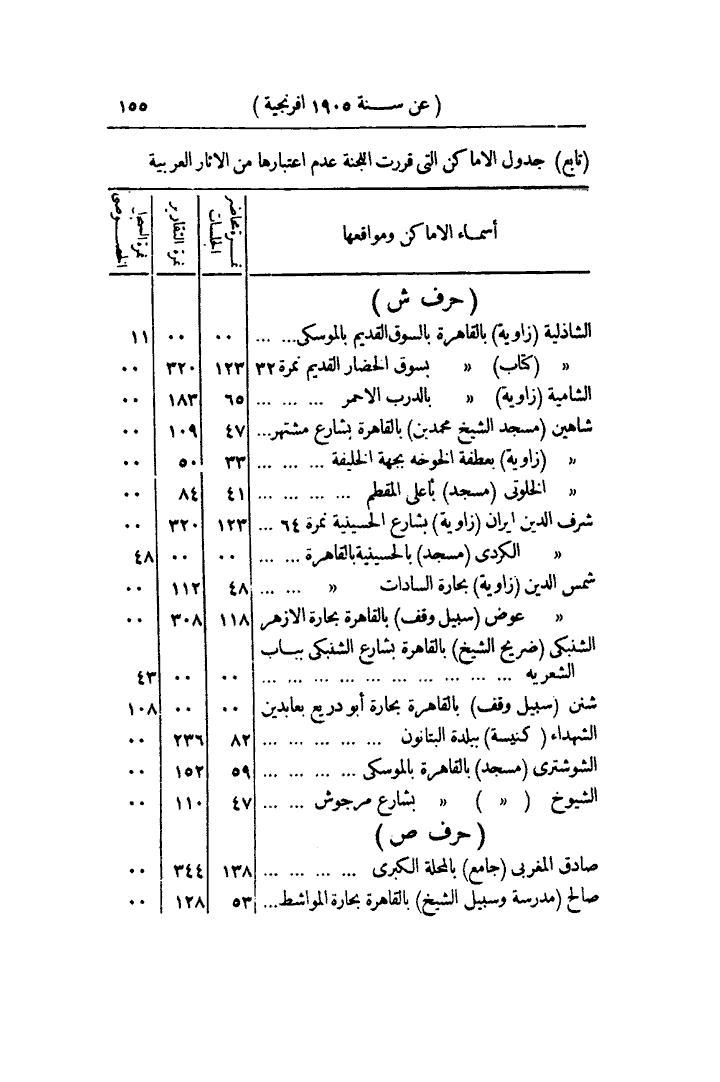 (عن سنة ١٩٠٥ افرنجية) ١٥٥
(تابع) جدول الاماكن التى قررت اللجنة عدم اعتبارها من الاثار العربية
أسماء الاماكن ومواقعها | نمرة محاضر الجلسات | نمرة التقارير | نمرة السجل الخصوصى
(حرف ش)
الشاذلية (زاوية) بالقاهرة بالسوق القديم بالموسكى... ... ٠٠ ٠٠ ١١
« (كتاب) « بسوق الخضار القديم نمرة ٣٢ ١٢٣ ٣٢٠ ٠٠
الشامية (زاوية) « بالدرب الاحمر ... ... ... ٦٥ ١٨٣ ٠٠
شاهين (مسجد الشيخ محمد بن) بالقاهرة بشارع مشتهر... ٤٧ ١٠٩ ٠٠
« (زاوية) بعطفة الخوخه بجهة الخليفة ... ... ... ٣٣ ٥٠ ٠٠
« الخلوتى (مسجد) بأعلى المقطم ... ... ... ... ٤١ ٨٤ ٠٠
شرف الدين ايران (زاوية) بشارع الحسينية نمرة ٦٤ ... ١٢٣ ٣٢٠ ٠٠
« الكردى (مسجد) بالحسينية بالقاهرة ... ... ٠٠ ٠٠ ٤٨
شمس الدين (زاوية) بحارة السادات « ... ... ٤٨ ١١٢ ٠٠
« عوض (سبيل وقف) بالقاهرة بحارة الازهر ١١٨ ٣٠٨ ٠٠
الشنبكى (ضريح الشيخ) بالقاهرة بشارع الشنبكى بباب
الشعريه ... ... ... ... ... ... ... ... ... ... ٠٠ ٠٠ ٤٣
شنن (سبيل وقف) بالقاهرة بحارة أبو دريع بعابدين ٠٠ ٠٠ ١٠٨
الشهداء (كنيسة) ببلدة البتانون ... ... ... ... ... ٨٢ ٢٣٦ ٠٠
الشوشترى (مسجد) بالقاهرة بالموسكى ... ... ... ... ٥٩ ١٥٢ ٠٠
الشيوخ ( « ) « بشارع مرجوش ... ... ٤٧ ١١٠ ٠٠
(حرف ص)
صادق المغربى (جامع) بالمحلة الكبرى ... ... ... ... ١٣٨ ٣٤٤ ٠٠
صالح (مدرسة وسبيل الشيخ) بالقاهرة بحارة المواشط... ٥٣ ١٢٨ ٠٠